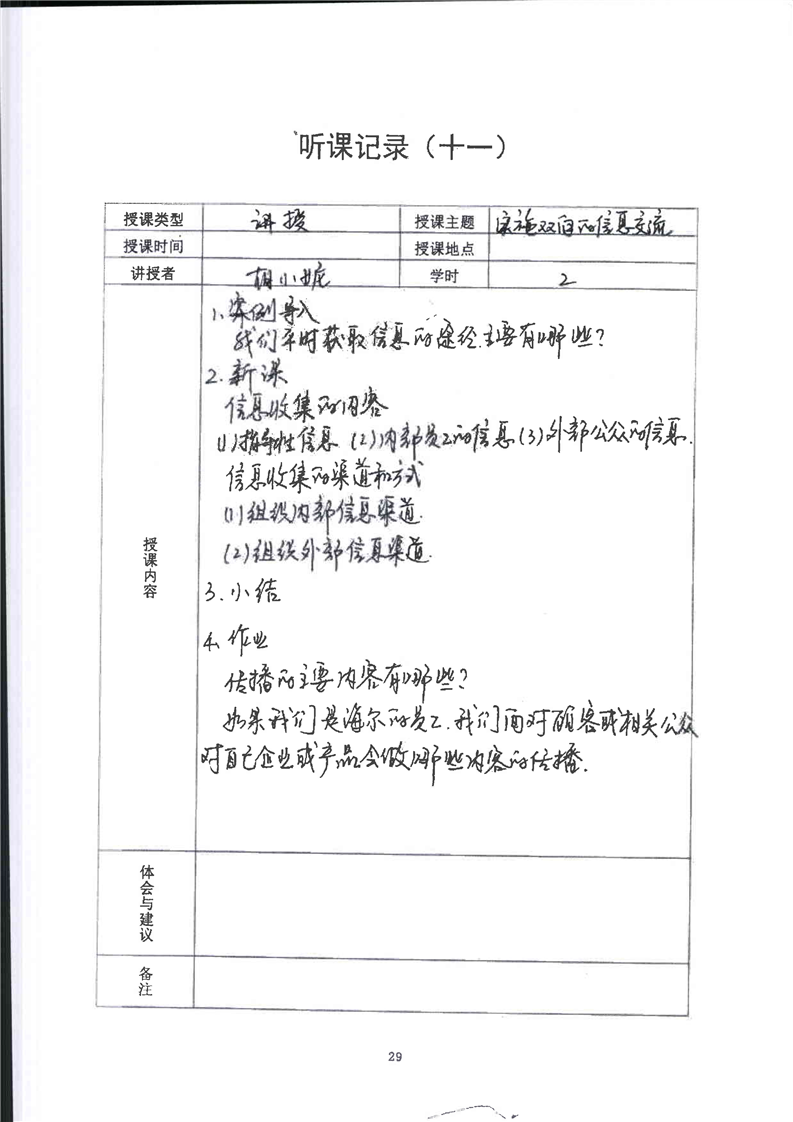 听课记录（十一）
授课类型 讲授 授课主题 实施双向的信息交流
授课时间 授课地点
讲授者 胡小 学时 2
授课内容
1、案例导入
我们平时获取信息的途径主要有哪些？
2.新课
信息收集的内容
(1)指导性信息 (2)内部员工的信息 (3)外部公众的信息.
信息收集的渠道和方式
(1)组织内部信息渠道.
(2)组织外部信息渠道.
3.小结
4、作业
传播的主要内容有哪些？
如果我们是海尔的员工.我们面对顾客或相关公众
对自己企业或产品会做哪些内容的传播.
体会与建议
备注
29